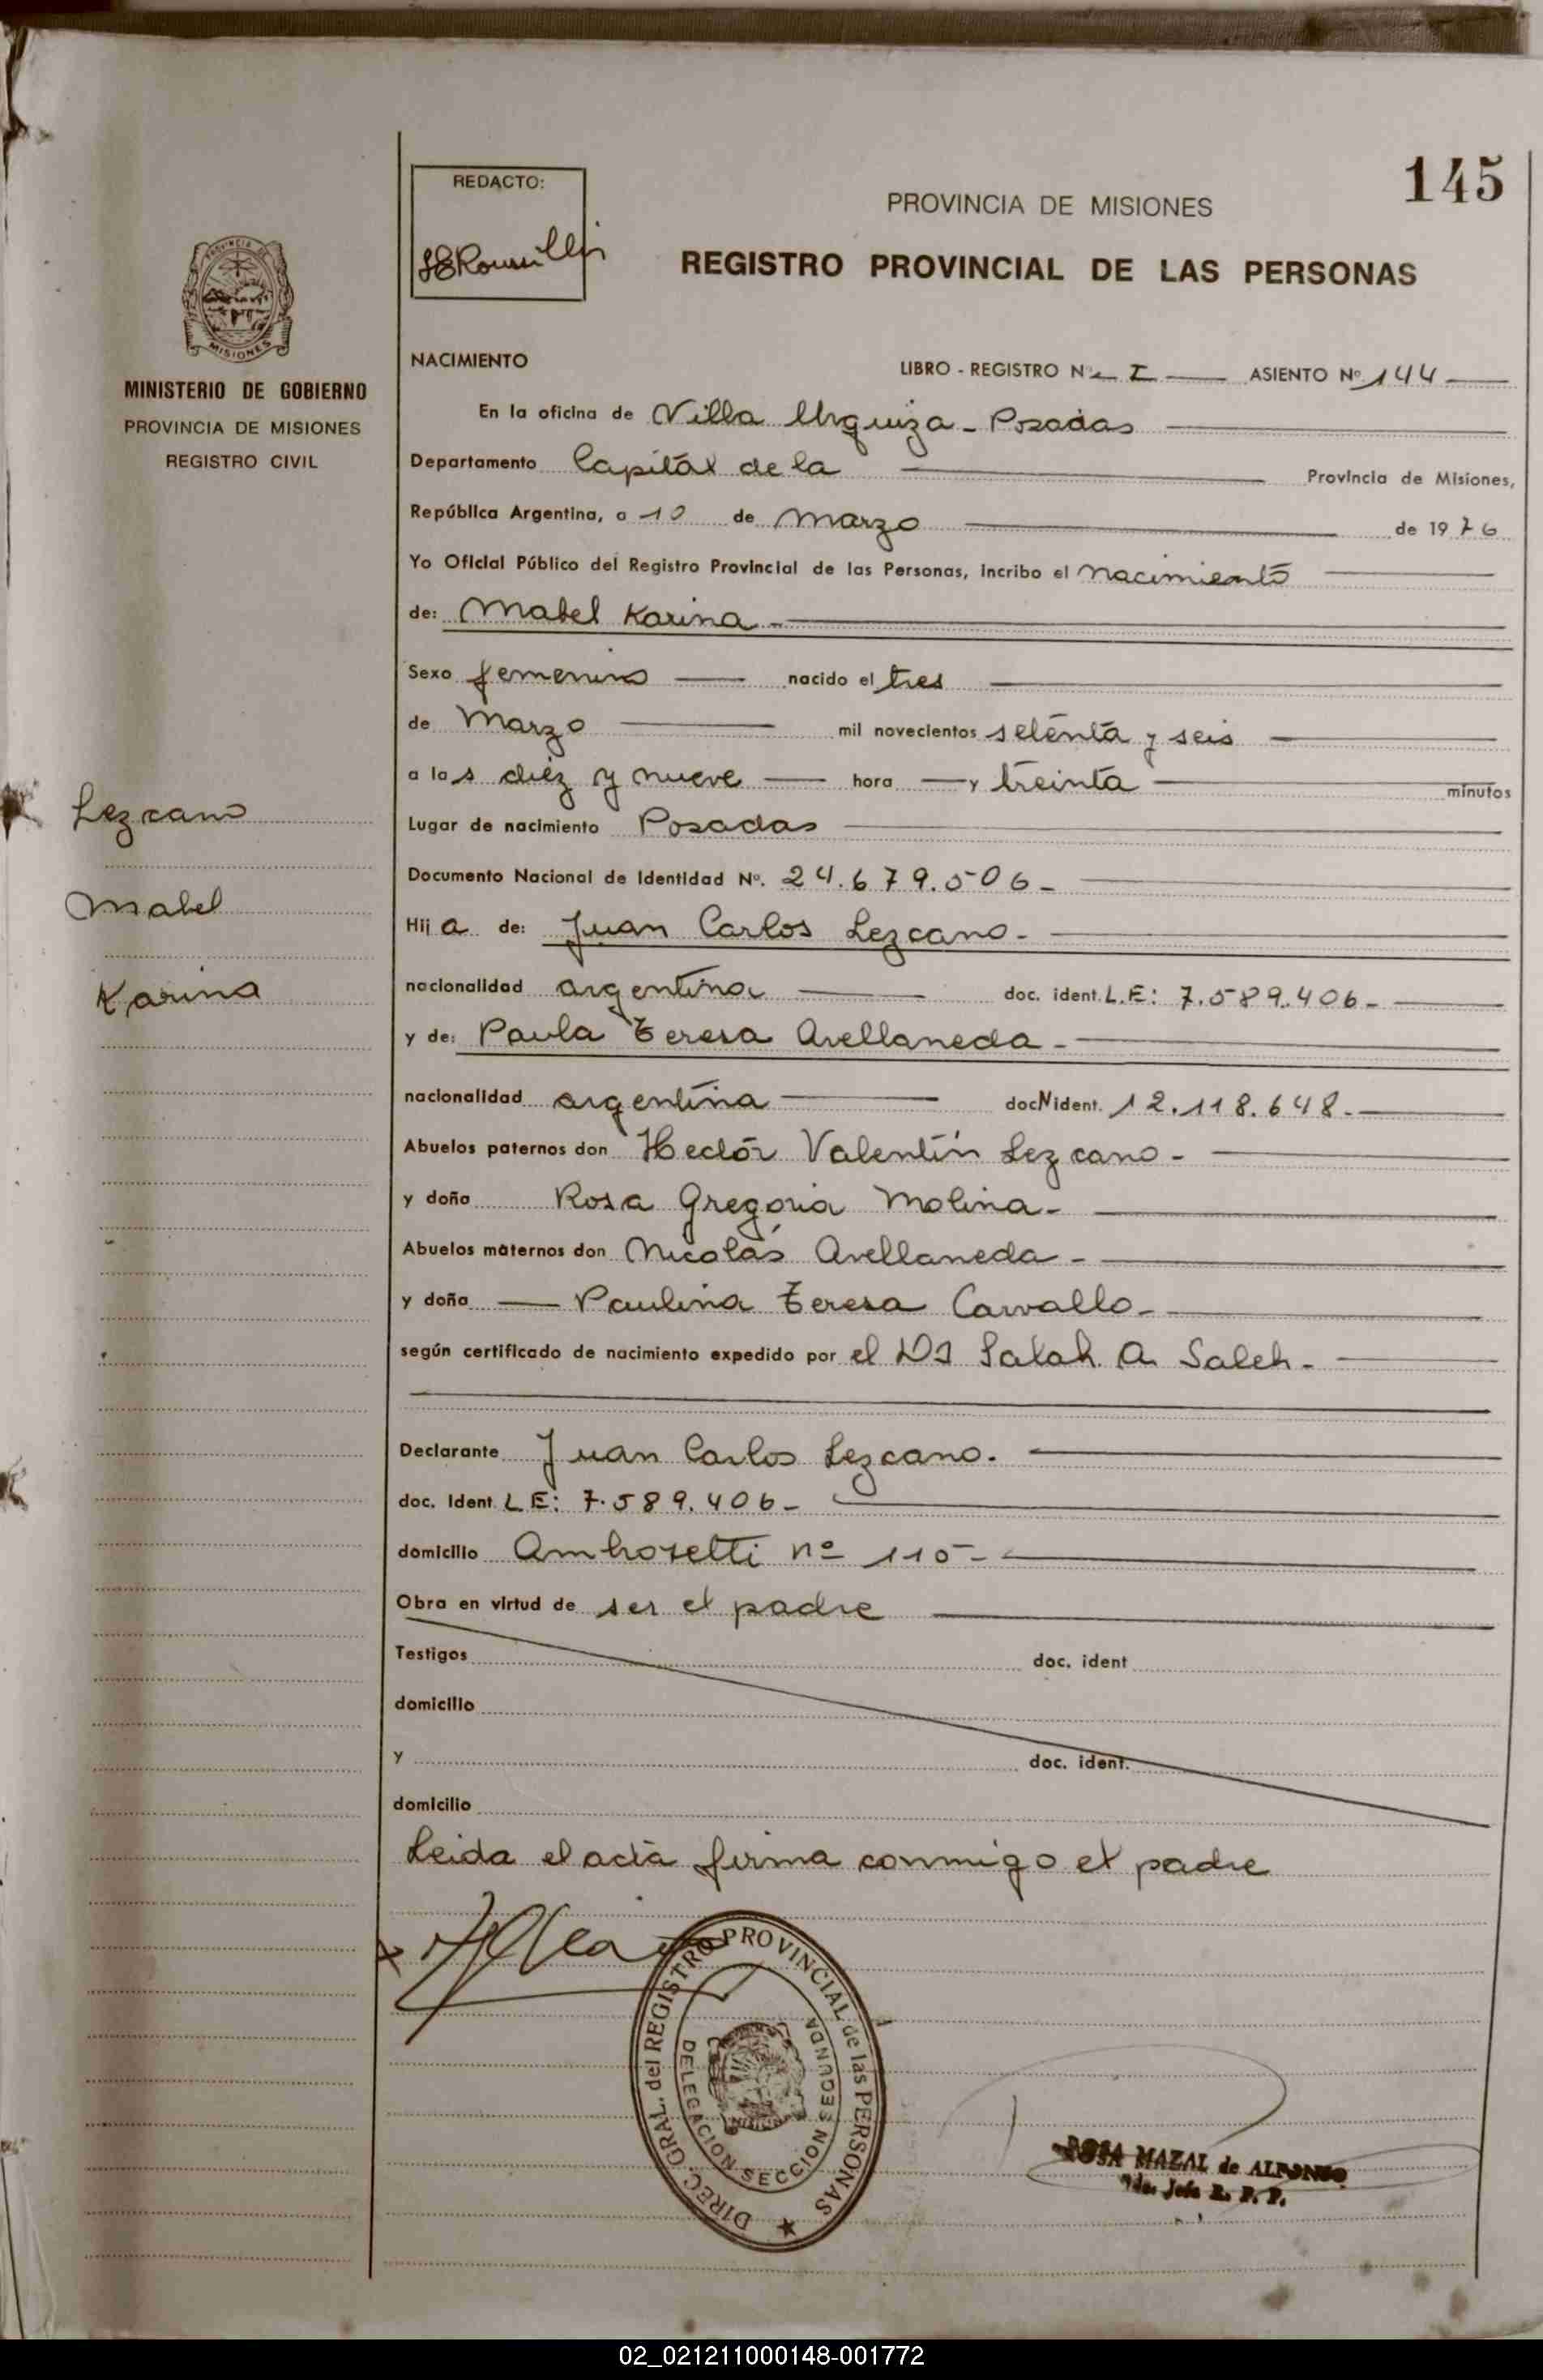 145
REDACTO:
PROVINCIA DE MISIONES
REGISTRO PROVINCIAL DE LAS PERSONAS
PROVINCIA DE
MISIONES
MINISTERIO DE GOBIERNO
PROVINCIA DE MISIONES
REGISTRO CIVIL
Lezcano
Mabel
Karina
NACIMIENTO LIBRO - REGISTRO Nº I ASIENTO Nº 144
En la oficina de Villa Urquiza - Posadas
Departamento Capital de la Provincia de Misiones,
República Argentina, a 10 de Marzo de 1976
Yo Oficial Público del Registro Provincial de las Personas, incribo el nacimiento
de: Mabel Karina -
Sexo femenino nacido el tres
de Marzo mil novecientos setenta y seis
a las diez y nueve hora y treinta minutos
Lugar de nacimiento Posadas
Documento Nacional de Identidad Nº. 24.679.506-
Hija de: Juan Carlos Lezcano-
nacionalidad argentina doc. ident. L.E: 7.589.406-
y de: Paula Teresa Avellaneda-
nacionalidad argentina docNident. 12.118.648.-
Abuelos paternos don Hector Valentín Lezcano-
y doña Rosa Gregoria Molina-
Abuelos maternos don Nicolás Avellaneda-
y doña Paulina Teresa Carvallo-
según certificado de nacimiento expedido por el Dr Salah. A. Saleh-
Declarante Juan Carlos Lezcano.
doc. Ident. LE: 7.589.406-
domicilio Ambrosetti nº 110-
Obra en virtud de ser el padre
Testigos doc. ident
domicilio
y doc. ident.
domicilio
Leida el acta firma conmigo el padre
DIREC. GRAL. del REGISTRO PROVINCIAL de las PERSONAS
DELEGACION SECCION SEGUNDA
ROSA MAZAL de ALFONSO
Jefe R. P. P.
02_021211000148-001772